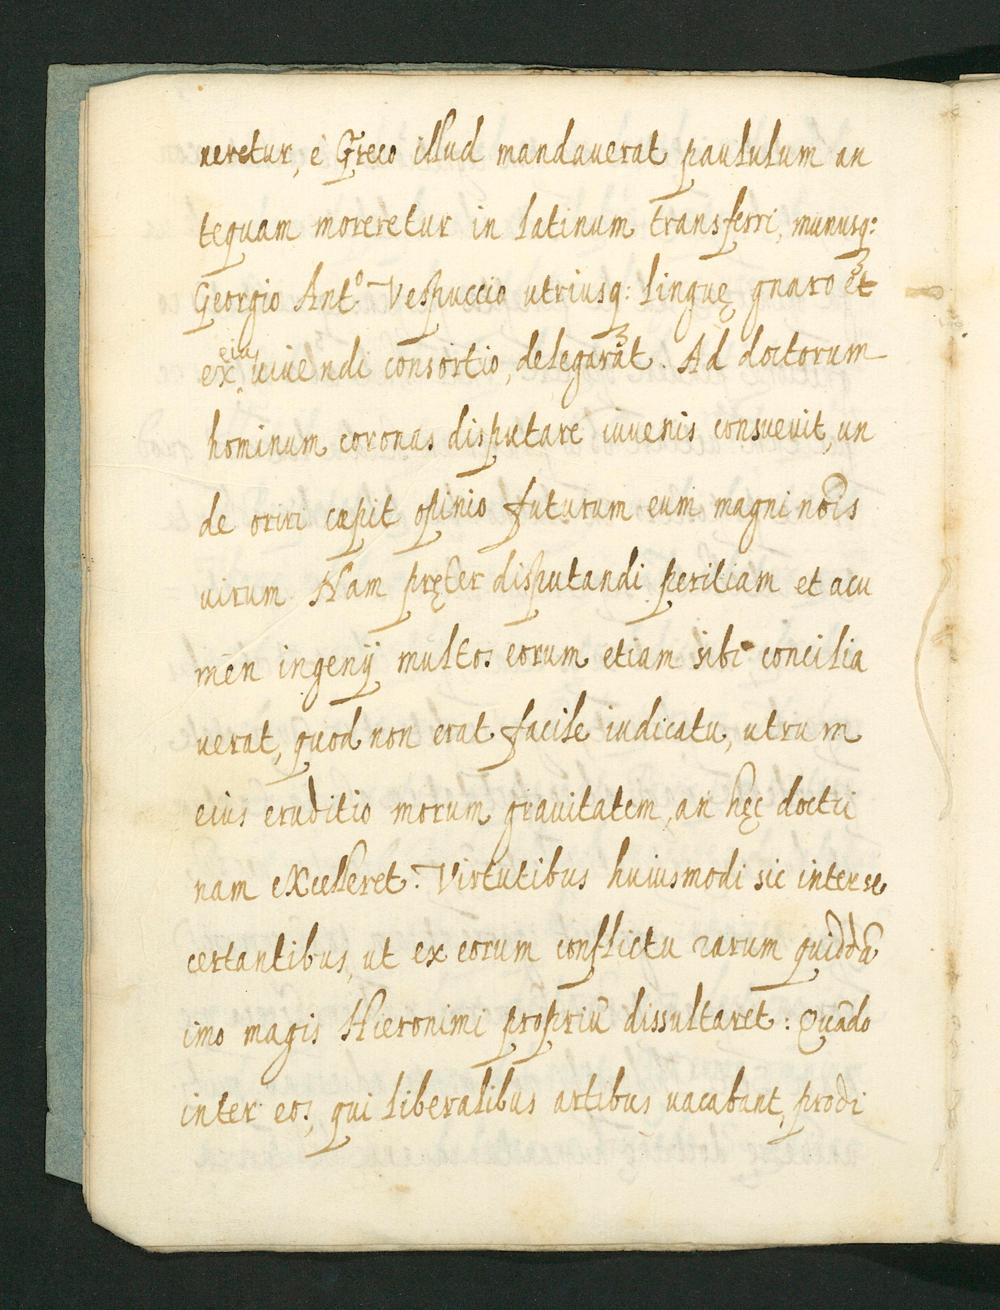 neretur, è Greco illud mandauerat paululum an
tequam moreretur in latinum transferri, munusq:
Georgio Ant.º Vespuccio utriusq: linguę gnaro et
ex eius uiuendi consortio, delegarat. Ad doctorum
hominum coronas disputare iuuenis consueuit, un
de oriri cœpit opinio futurum eum magni nõis
uirum. Nam pręter disputandi peritiam et acu
men ingenij multos eorum etiam sibi concilia
uerat, quod non erat facile iudicatu, utrum
eius eruditio morum grauitatem, an hęc doctri
nam excelleret. Virtutibus huiusmodi sic inter se
certantibus, ut ex eorum conflictu rarum quiddã
imo magis Hieronimi propriũ dissultaret: Quãdo
inter eos, qui liberalibus artibus uacabant, prodi